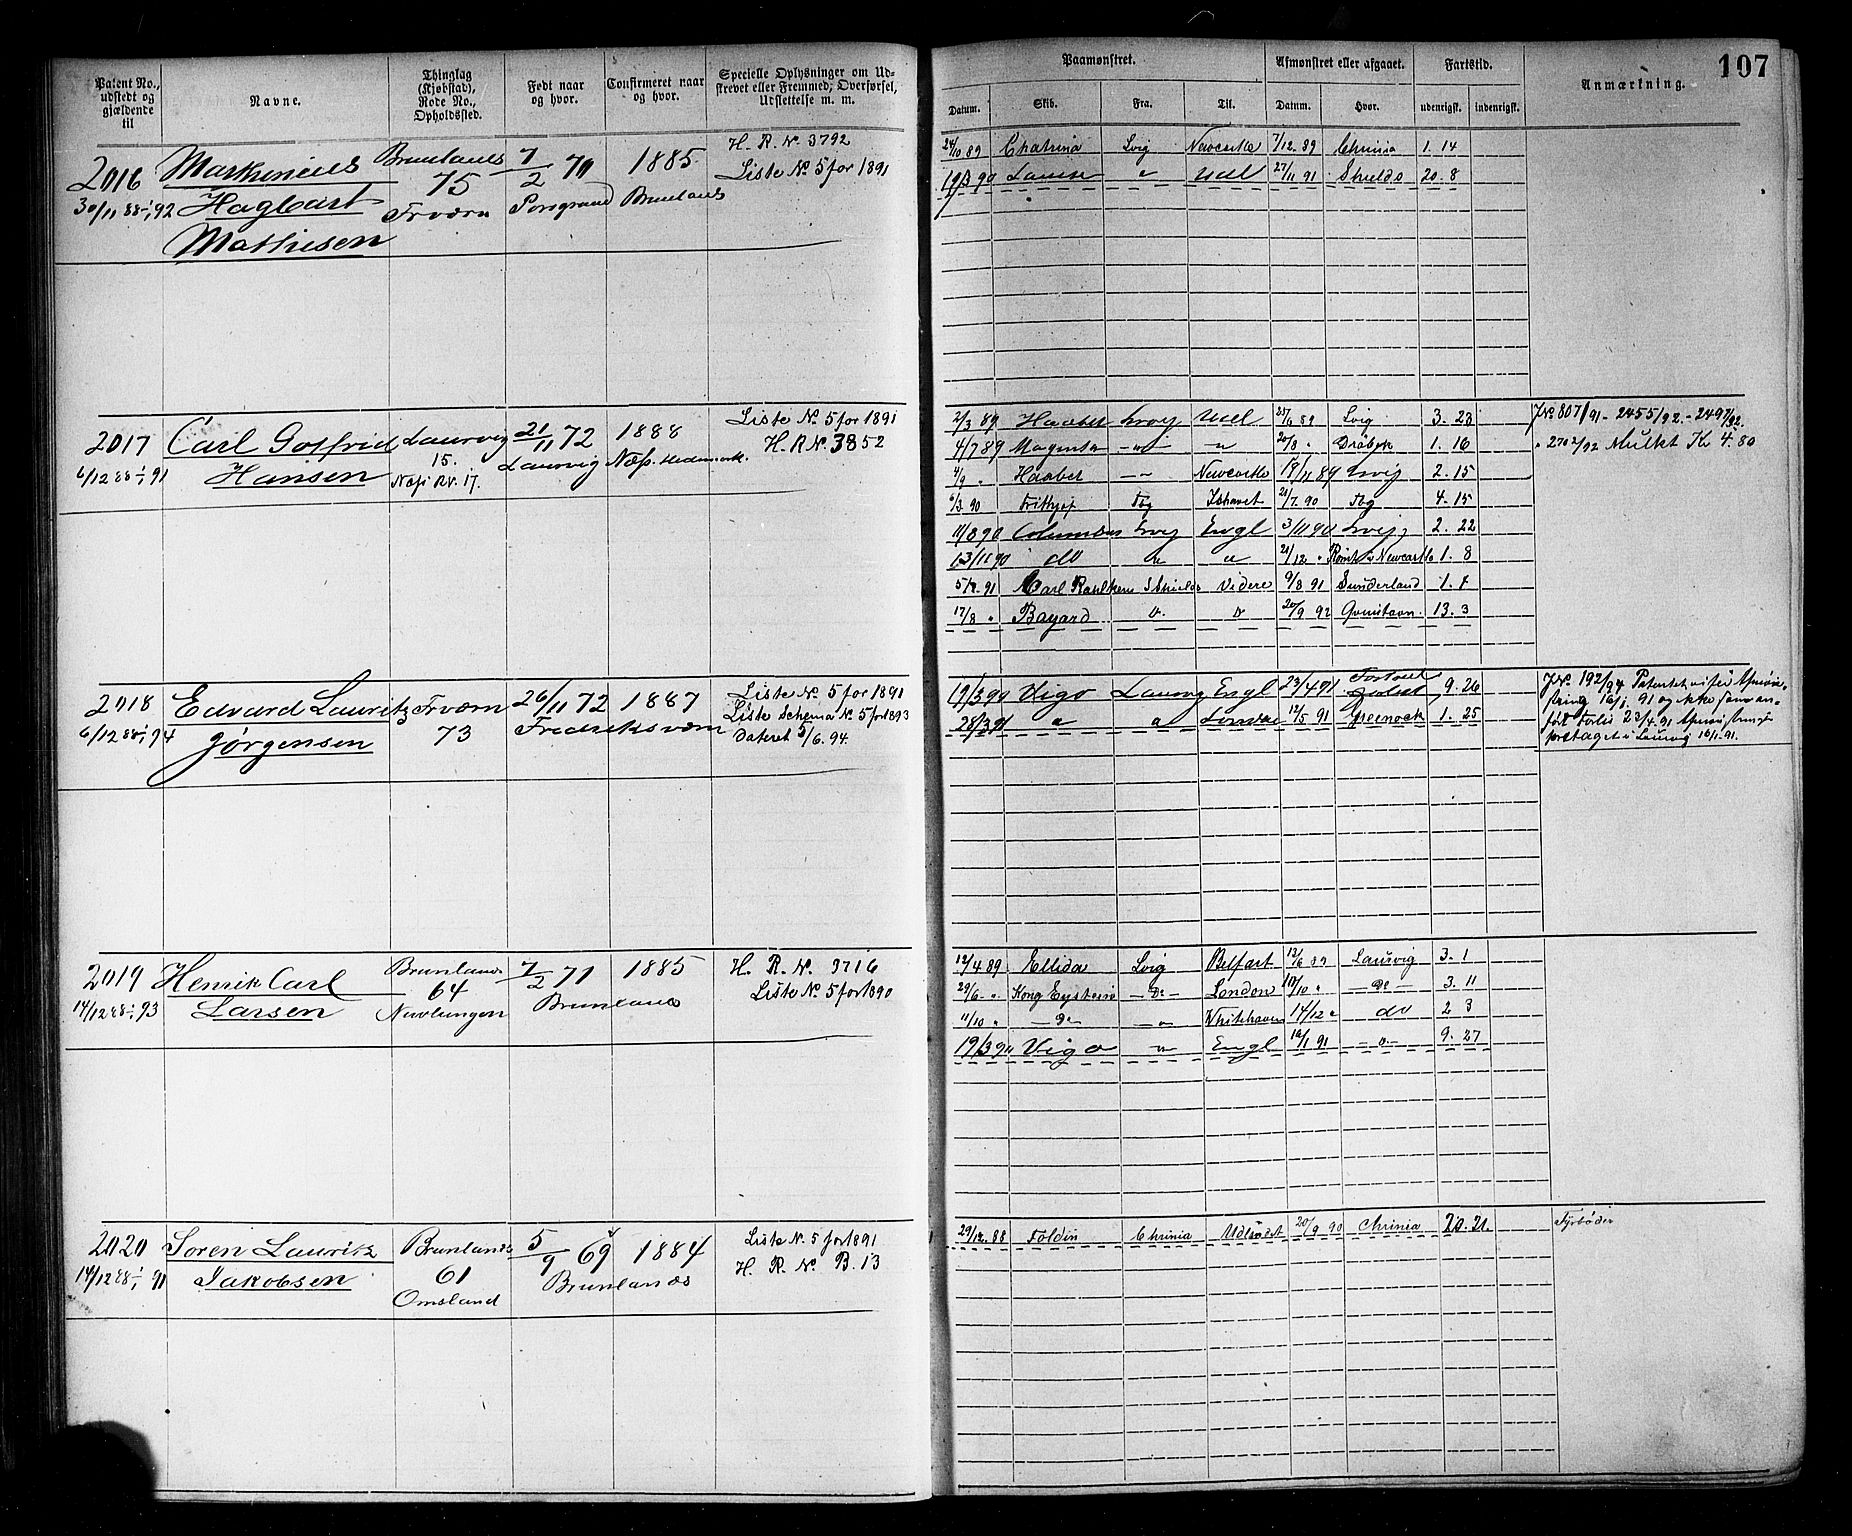 107
Patent No., udstedt og gjældende til
Navne.
Thinglag (Kjøbstad), Rode No., Opholdssted.
Født naar og hvor.
Confirmeret naar og hvor.
Specielle Oplysninger om Udskrevet eller Fremmed, Overførsel, Udslettelse m. m.
Paamønstret.
Afmønstret eller afgaaet.
Fartstid.
Anmærkning.
Datum. Skib. Fra. Til. Datum. Hvor. udenrigsk. indenrigsk.
2016 Brunlanes 7/2 70 1885 H. R. No 3792
75 Liste No. 5 for 1891
30/11 88-1/1 92 Hagbart Frværn Porsgrund Brunlanes
Mathisen
24/10 89 Chatrina Lvig Newcastle 7/12 89 Chrinia 1. 14
19/3 90 " Udl 27/11 91 Shields 20. 8
2017 Carl Gotfried Laurvig 21/11 72 1888 Liste No. 5 for 1891
6/12 88-1/1 91 Hansen 15. Laurvig Næs. Hedemark. H. R No. 3852
17.
2/3 89 Haabet Lvig Udl 25/6 89 Lvig 3. 23 JNo 807/91 - 2455/92. - 2497/92.
4/7 89 Magenta " " 20/8 " Drøbak 1. 16 " 2702/92 Mulkt Kr 4.80
4/9 " Haabet " Newcastle 19/11 89 Lvig 2. 15
6/3 90 Frithjof Tbg Ishavet 21/7 90 Tbg 4. 15
11/8 90 Columbus Lvig Engl 3/11 90 Lvig 2. 22
13/11 90 do " " 21/12 " Rømt i Newcastle 1. 8
5/7 91 Carl S Shields Videre 9/8 91 Sunderland 1.
17/8 " Bayard " " 20/9 92 13. 3
2018 Edvard Lauritz Fr værn 26/11 72 1887 Liste No. 5 for 1891
6/12 88-1/1 94 Jørgensen 73 Fredriksværn Liste Schema No. 5 for 1893
Dateret 5/6. 94.
19/3 90 Vigo Laurvig Engl 23/4 91 9. 26
28/3 91 " " London 12/5 91 Greenock 1. 25
JNo. 192/94 Patentet viser Afmøn-
string 16/1 91 og ikke som an-
ført Forlis 23/4. 91 Afmønstringen
foretaget i Laurvig 16/1. 91.
2019 Henrik Carl Brunlanes 7/2 71 1885 H. R. No. 3716
14/12 88-1/1 93 Larsen 64 Brunlanes Liste No. 5 for 1890
Nevlungen
12/4 89 Ellida Lvig Belfast 12/6 89 Laurvig 3. 1
29/6 " Kong Eystein - Do - London 10/10 " - Do - 3. 11
11/10 " - Do - " Whitehaven 14/12 " do 2 3
19/3 90 Vigo " Engl 16/1 91 " 9. 27
2020 Søren Lauritz Brunlanes 5/9 69 1884 Liste No. 5 for 1891
14/12 88-1/1 91 Jakobsen 61 Brunlanes H. R. No B. 13
Omsland
29/12. 88 Foldin Chrinia Udlandet 20/9 90 Chrinia 20. 21. Fyrbøder